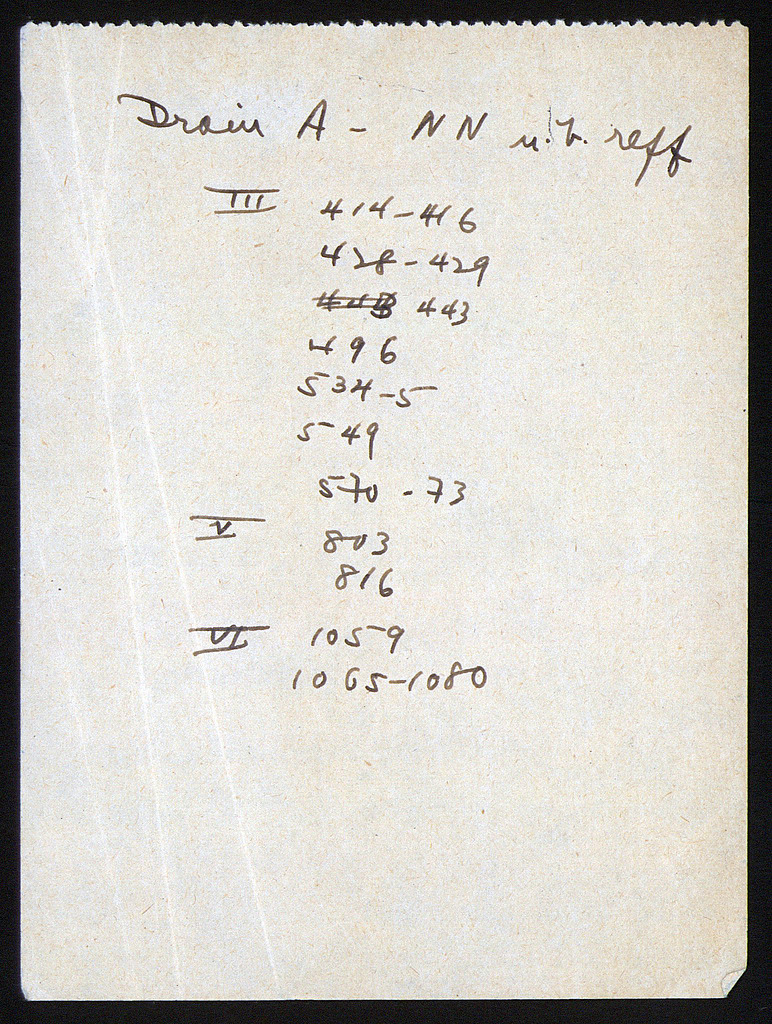 Drain A - NN n.b. reff
III 414-416
428-429
443
496
534-5
549
570-73
V 803
816
VI 1059
1065-1080